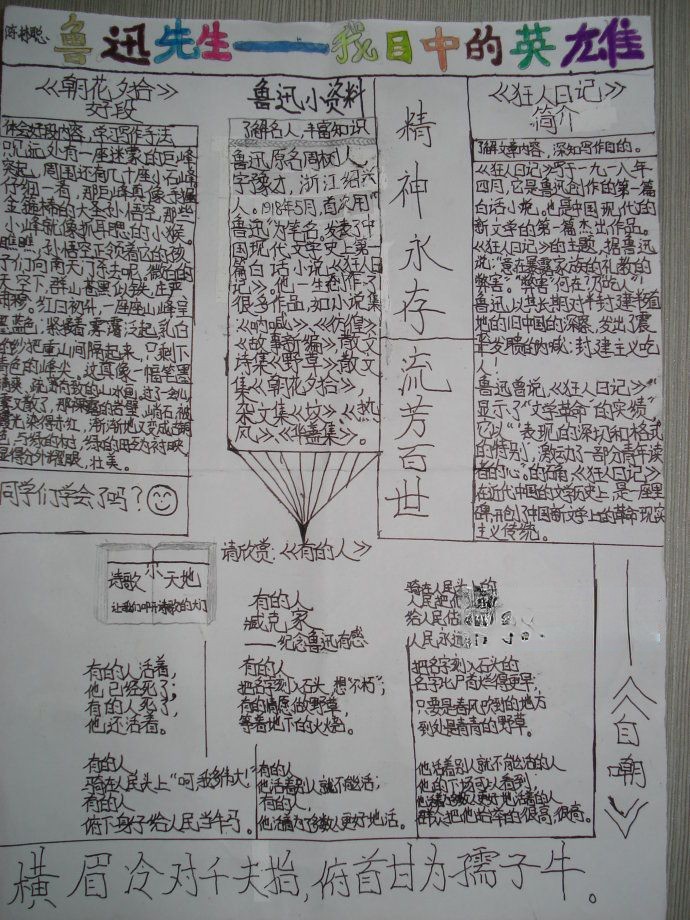 陈林聪:
鲁迅先生——我目中的英雄
《朝花夕拾》
好段
体会好段内容,学习写作手法
只见远处有一座迷蒙的巨峰
突起,周围还有几十座小石峰
仔细一看,那巨峰真像手握
金箍棒的大圣孙悟空,那些
小峰就像抓耳腮的小猴。
瞧瞧,孙悟空正领着它的孩
子们向南天门杀去呢。微白的
天空下,群山苍黑似铁,庄严
肃穆。红日初升,一座座山峰呈
墨蓝色,紧接着雾霭泛起,乳白
的纱把重山间隔起来,只剩下
青色的峰尖,真像一幅笔墨
清爽,疏密有致的山水画,过了一会儿
雾又散了,那裸露的岩壁,峭石,被
霞光染得赤红,渐渐地又变成古铜
色,与绿的树,绿的田互为衬映,
显得分外耀眼,壮美。
同学们学会了吗?
鲁迅小资料
了解名人,丰富知识
鲁迅原名周树人,
字豫才,浙江绍兴
人。1918年5月,首次用“
鲁迅”为笔名,发表了中
国现代文学史上第一
篇白话小说《狂人日
记》。他一生创作了
很多作品,如小说集
《呐喊》、《彷徨》、
《故事新编》,散文
诗集《野草》,散文
集《朝花夕拾》,
杂文集《坟》、《热
风》、《华盖集》。
精神永存
流芳百世
《狂人日记》
简介
了解文章内容,深知写作目的。
《狂人日记》写于一九一八年
四月,它是鲁迅创作的第一篇
白话小说。也是中国现代的
新文学的第一篇杰出作品。
《狂人日记》的主题,据鲁迅
说:“意在暴露家族的礼教的
弊害。”“弊害”何在?乃“吃人”!
鲁迅以其长期对半封建半殖
地的旧中国的深察,发出了震
聋发聩的呐喊:封建主义吃
人!
鲁迅曾说,《狂人日记》“
显示了‘文学革命’的实绩”,
它以“‘表现的深切和格式
的特别’,激动了一部分青年读
者的心。”的石角《狂人日记》
在近代中国的文学历史上,是一座里
碑,开创了中国新文学上的革命现实
主义传统。
请欣赏:《有的人》
诗歌小天地
让我们叩开诗歌的大门
有的人
臧克家
——纪念鲁迅有感
有的人活着,
他已经死了;
有的人死了,
他还活着。
有的人
骑在人民头上“呵,我多伟大!”
有的人
俯下身子给人民当牛马。
有的人
把名字刻入石头,想“不朽”;
有的人情愿做野草,
等着地下的火烧。
有的人
他活着别人就不能活;
有的人,
他活着为了多数人更好地活。
骑在人民头上的
人民把他
给人民
人民永远
把名字刻入石头的
名字比尸首烂得更早;
只要春风吹到的地方
到处是青青的野草。
他活着别人就不能活的人
他的下场可以看到;
他活着为了多数人更好地活着的人,
群众把他抬举的很高,很高。
——《自嘲》
横眉冷对千夫指,俯首甘为孺子牛。